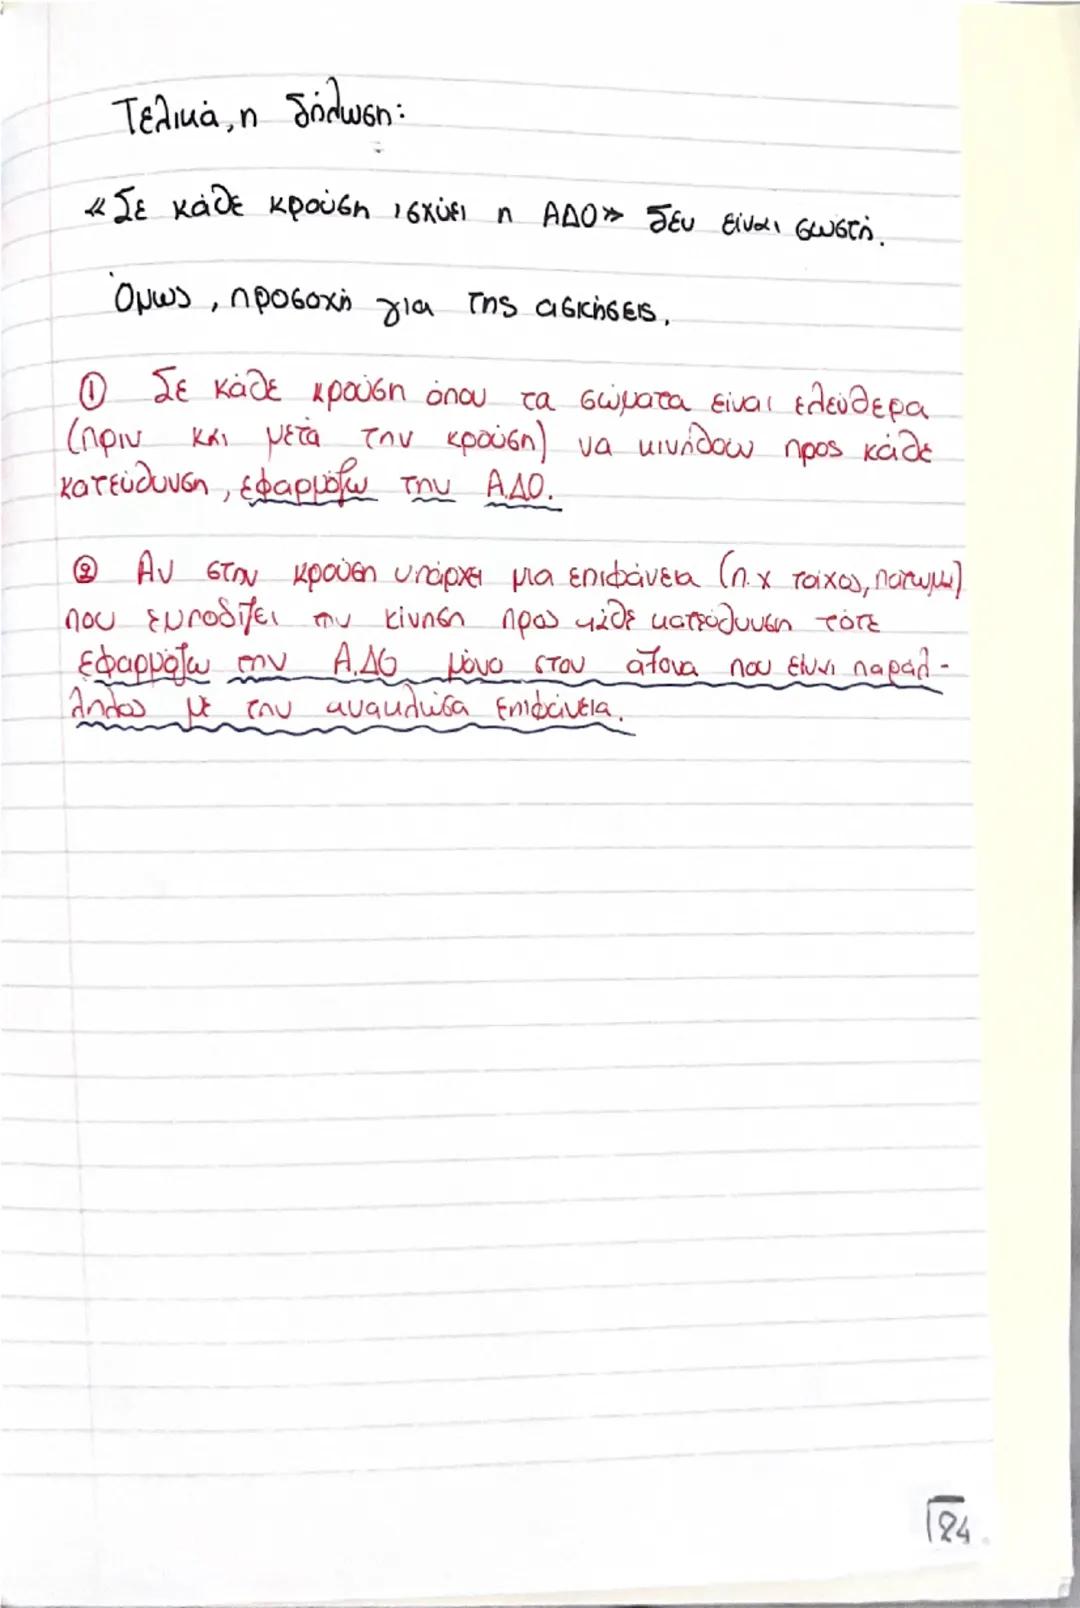 Τελικά, η δήλωση:
«Σε κάθε κρούση ισχύει η ΑΔΟ» δεν είναι σωστή.
Όμως, προσοχή για της ασκήσεις.
① Σε κάθε κρούση όπου τα σώματα είναι ελεύθερα
(πριν και μετά την κρούση) να κινηθούν προς κάθε
κατεύθυνση, εφαρμόζω την Α.ΔΟ.
② Αν στην κρούση υπάρχει μια επιφάνεια (π.χ τοίχος, πάτωμα)
που εμποδίζει την κίνηση προς κάθε κατεύθυνση τότε
εφαρμόζω την Α.ΔΟ μόνο στον άξονα που είναι παράλ-
ληλος με την ανακλώσα επιφάνεια.
24